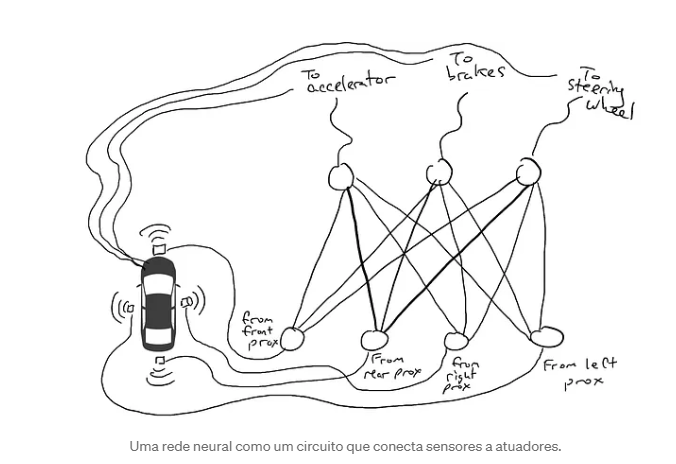 To
accelerator
To
brakes
To
steering
wheel
from
front
prox
From
rear prox
from
right
prox
From left
prox
Uma rede neural como um circuito que conecta sensores a atuadores.